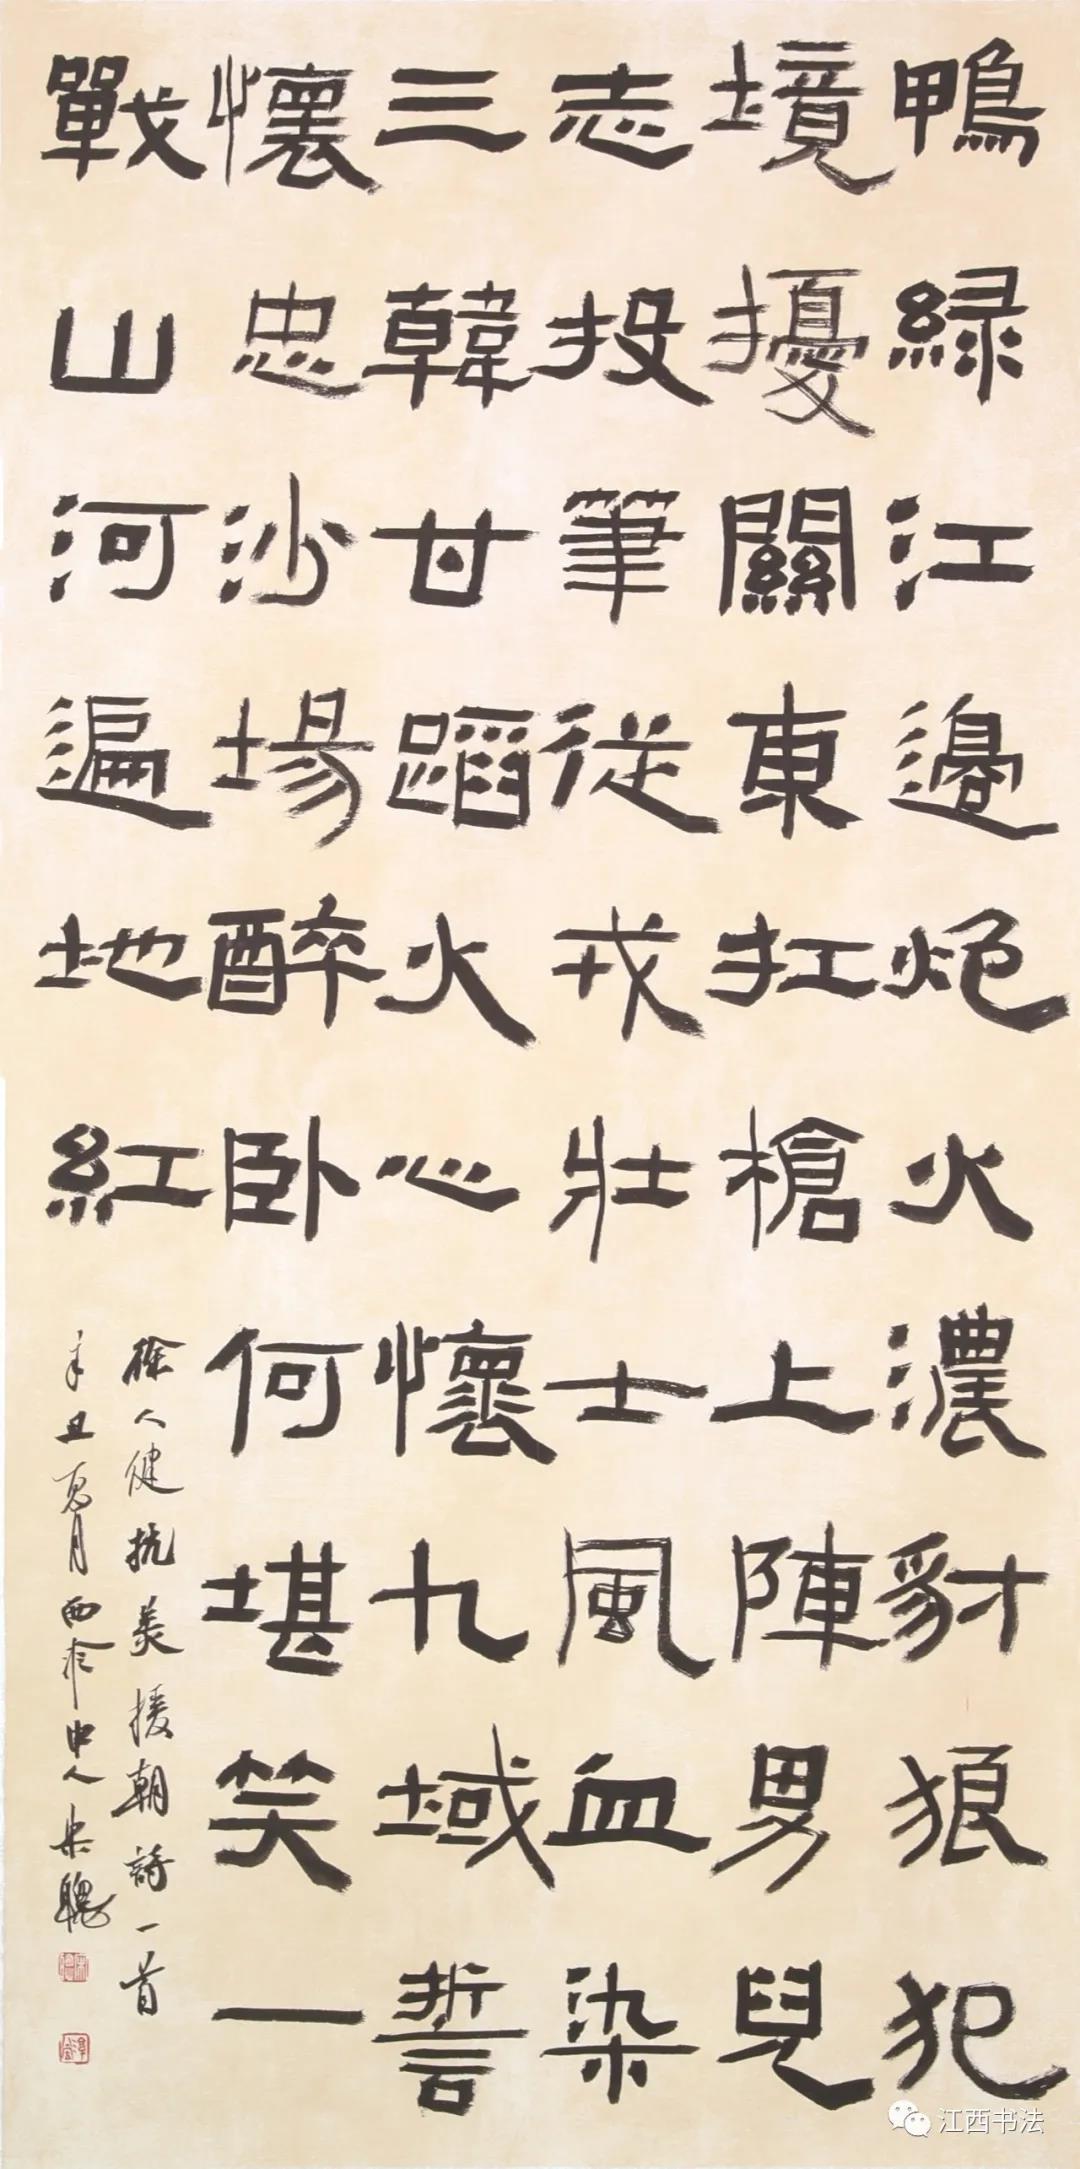 鴨緑江邊炮火濃豺狼犯
境擾關東扛槍上陣男兒
志投筆從戎壯士風血染
三韓甘蹈火心懷九域誓
懷忠沙場醉卧何堪笑一
戰山河遍地紅
徐人健抗美援朝詩一首
辛丑夏月西泠中人
江西书法